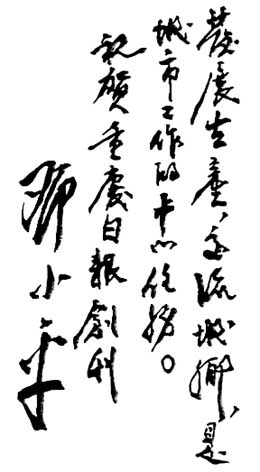 發展生產、交流城鄉、是
城市工作的中心任務。
祝贺重慶日報創刊
鄧小平